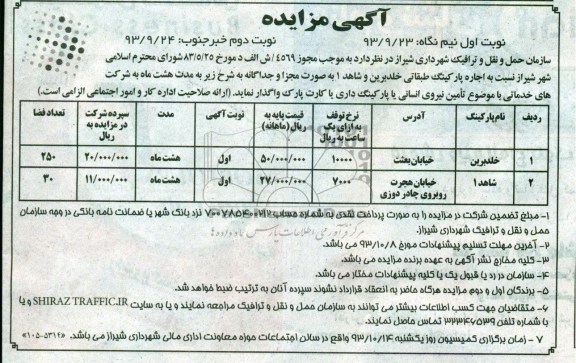 آگهی مزایده
نوبت اول نیم نگاه: ۹۳/۹/۲۳ نوبت دوم خبرجنوب: ۹۳/۹/۲۴
سازمان حمل و نقل و ترافیک شهرداری شیراز در نظر دارد به موجب مجوز ۴۵۶۹/ش الف د مورخ ۸۳/۵/۲۵ شورای محترم اسلامی
شهر شیراز نسبت به اجاره پارکینگ طبقاتی خلدبرین و شاهد ۱ به صورت مجزا و جداگانه به شرح زیر به مدت هشت ماه به شرکت
های خدماتی با موضوع تأمین نیروی انسانی یا پارکینگ داری یا کارت پارک واگذار نماید. (ارائه صلاحیت اداره کار و امور اجتماعی الزامی است.)
ردیف نام پارکینگ آدرس نرخ توقف به ازای یک ساعت به ریال قیمت پایه به ریال (ماهانه) نوبت آگهی مدت سپرده شرکت در مزایده به ریال تعداد فضا
خلدبرین خیابان بعثت ۱۰۰۰۰ ۵۰/۰۰۰/۰۰۰ اول هشت ماه ۲۰/۰۰۰/۰۰۰ ۲۵۰
۲ شاهد ۱ خیابان هجرت روبروی چادر دوزی ۷۰۰۰ ۲۷/۰۰۰/۰۰۰ اول هشت ماه ۱۱/۰۰۰/۰۰۰ ۳۰
۱- مبلغ تضمین شرکت در مزایده را به صورت پرداخت نقدی به شماره حساب ۷۰۰۷۸۵۴۰۰۲۱۲ نزد بانک شهر یا ضمانت نامه بانکی در وجه سازمان
حمل و نقل و ترافیک شهرداری شیراز.
۲- آخرین مهلت تسلیم پیشنهادات مورخ ۹۳/۱۰/۸ می باشد.
۳- کلیه مخارج نشر آگهی به عهده برنده مزایده می باشد.
۴- سازمان در رد یا قبول یک یا کلیه پیشنهادات مختار می باشد.
۵- برندگان اول و دوم مزایده هرگاه حاضر به انعقاد قرارداد نشوند سپرده آنان به ترتیب ضبط خواهد شد.
۶- متقاضیان جهت کسب اطلاعات بیشتر می توانند به سازمان حمل و نقل و ترافیک مراجعه نمایند و یا به سایت SHIRAZ TRAFFIC.IR و یا
با شماره تلفن ۳۲۳۴۶۵۳۹ تماس حاصل نمایند.
۷ - زمان برگزاری کمیسیون روز یکشنبه ۹۳/۱۰/۱۴ واقع در سالن اجتماعات حوزه معاونت اداری مالی شهرداری شیراز می باشد. «۱۰۵-۵۳۱۴»